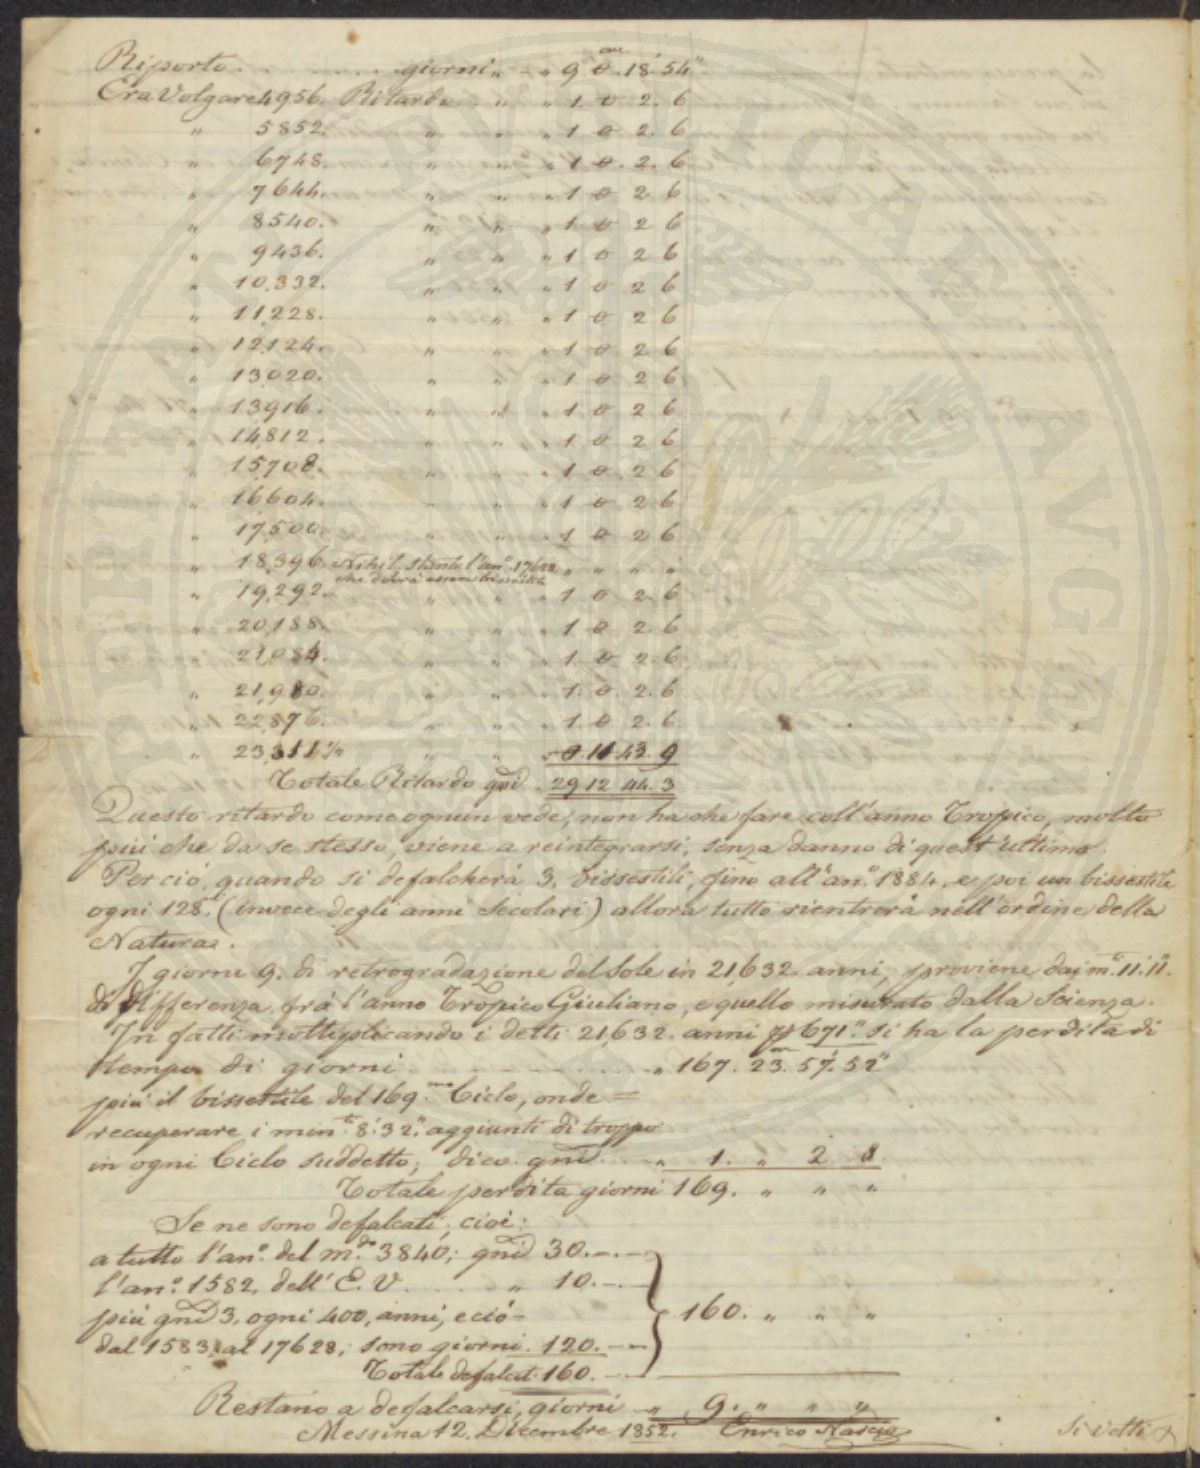 Riporto . . . . . . . . . giorni „ – „ 9 0.ore 18.' 54"
Era Volgare 4956. Ritardo „ „ 1. 0 2. 6
„ 5852. „ „ „ 1 0 2. 6
„ 6748. „ „ „ 1 0. 2. 6
„ 7644. „ „ „ 1 0 2 6
„ 8540. „ „ „ 1 0 2 6
„ 9436. „ „ „ 1 0 2 6
„ 10,332. „ „ „ 1 0 2 6
„ 11,228. „ „ „ 1 0 2 6
„ 12,124. „ „ „ 1 0 2 6
„ 13,020. „ „ „ 1 0 2 6
„ 13,916. „ „ „ 1 0 2 6
„ 14,812. „ „ „ 1 0 2 6
„ 15,708. „ „ „ 1 0 2 6
„ 16,604. „ „ „ 1 0 2 6
„ 17,500. „ „ „ 1 0 2 6
„ 18,396. Nihil, stante l'an.o 17628. „ „ „ „
che dovrà essere bissestile
„ 19,292. „ „ „ 1 0 2. 6
„ 20,188. „ „ „ 1 0 2. 6
„ 21,084. „ „ „ 1. 0 2. 6
„ 21,980. „ „ „ 1. 0. 2. 6
„ 22,876. „ „ „ 1. 0 2. 6
„ 23,311 ½ „ „ 0. 11. 43. 9
Totale Ritardo gni „ 29 12 44. 3
Questo ritardo come ognun vede, non ha che fare coll'anno Tropico, molto
più che da se stesso, viene a reintegrarsi, senza danno di quest'ultimo.
Perciò, quando si defalcherà 3. bissestili, fino all'an.o 1884, e poi un bissestile
ogni 128. (invece degli anni Secolari) allora tutto rientrerà nell'ordine della
Natura.
I giorni 9. di retrogradazione del Sole in 21,632. anni, proviene dai m.ti 11.' 11."
di differenza frà l'anno Tropico Giuliano, e quello misurato dalla Scienza.
In fatti moltiplicando i detti 21,632. anni p 671." si ha la perdita di
tempo di giorni . . . . . . . . . . . „ 167. 23. 57.' 52"
più il bissestile del 169.mo Ciclo, onde =
recuperare i min.ti 8.' 32." aggiunti di troppo
in ogni Ciclo suddetto, dico gni . . „ 1. „ 2 8
Totale perdita giorni 169. „ „ „
Se ne sono defalcati, cioè:
a tutto l'an.o del m.do 3840; gni 30. – . –
l'an.o 1582, dell'E. V. . . . . . . „ 10. – .
più gni 3, ogni 400, anni, e ciò – 160. „ „ „
dal 1583, al 17628; sono giorni. 120. – –
Totale defalcat. 160. –
Restano a defalcarsi, giorni – „ 9. „ „ „
Messina 12. Dicembre 1852. Enrico
Si volti
PERITAT PVBLICAE AVGE